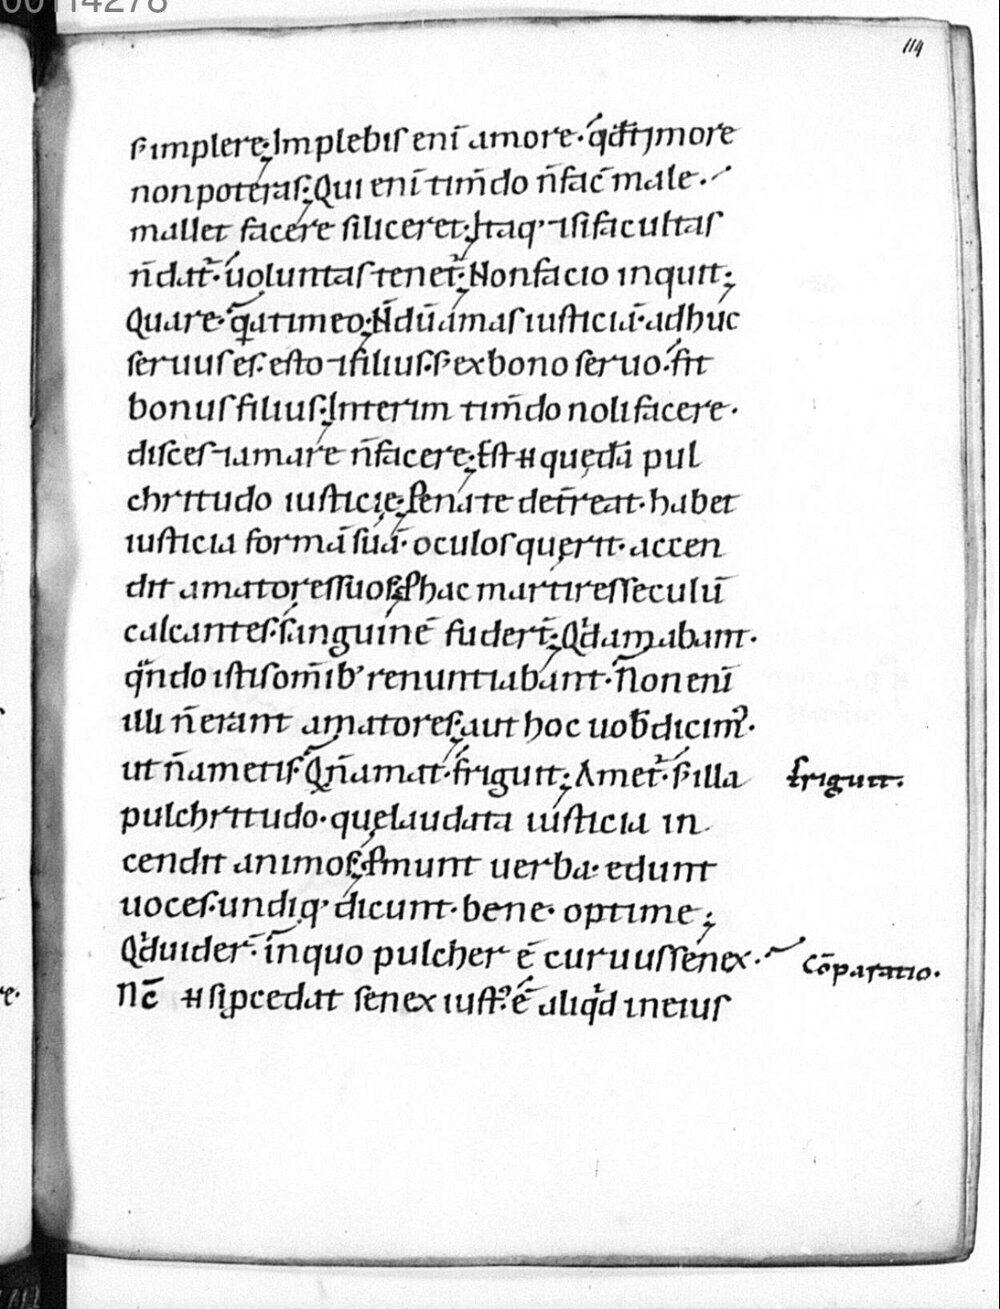 00114278
114
ẜ implere; Implebiſ eni̅ amore· qd̅ timore
non poteraſ; Qui eni̅ tim̅do n̅ fac̅ male·
mallet facere ſi liceret; Itaq· ⁊ ſi facultaſ
n̅ dat᷑· uoluntaſ tenet᷑; Non facio inquit;
Quare· q̅a timeo; N̅du̅ amaſ iuſticia̅· adhuc
ſeruuſ eſ· eſto ⁊ filiuſ· ẜ ex bono ſeruo· fit
bonuſ filiuſ; Interim tim̅do noli facere·
diſceſ ⁊ amare n̅ facere; Eſt ħ quęda̅ pul
chritudo iuſticię; Pena te det̅reat· habet
iuſticia forma̅ ſua̅· oculoſ querit· accen
dit amatoreſ ſuoſ; P hac martireſ ſeculu̅
calcanteſ· ſanguine̅ fuder̅t; Qd̓ amabant·
qn̓do iſtiſ om̅ib’ renuntiabant· Non eni̅
illi n̅ erant amatoreſ; aut hoc uob̅ dicim᷒·
ut n̅ ametiſ· Q n̅ amat· friguit; Amet᷑· ẜ illa
friguit·
pulchritudo· quę laudata iuſticia in
cendit animoſ; P̅munt uerba· edunt
uoceſ· undiq· dicunt· bene· optime;
Qd̓ uider̅· in quo pulcher e̅ curuuſ ſenex·
co̅paratio·
Nc̅ ħ ſi p̱cedat ſenex iuſt᷒· e̅ aliqd̓ in eiuſ